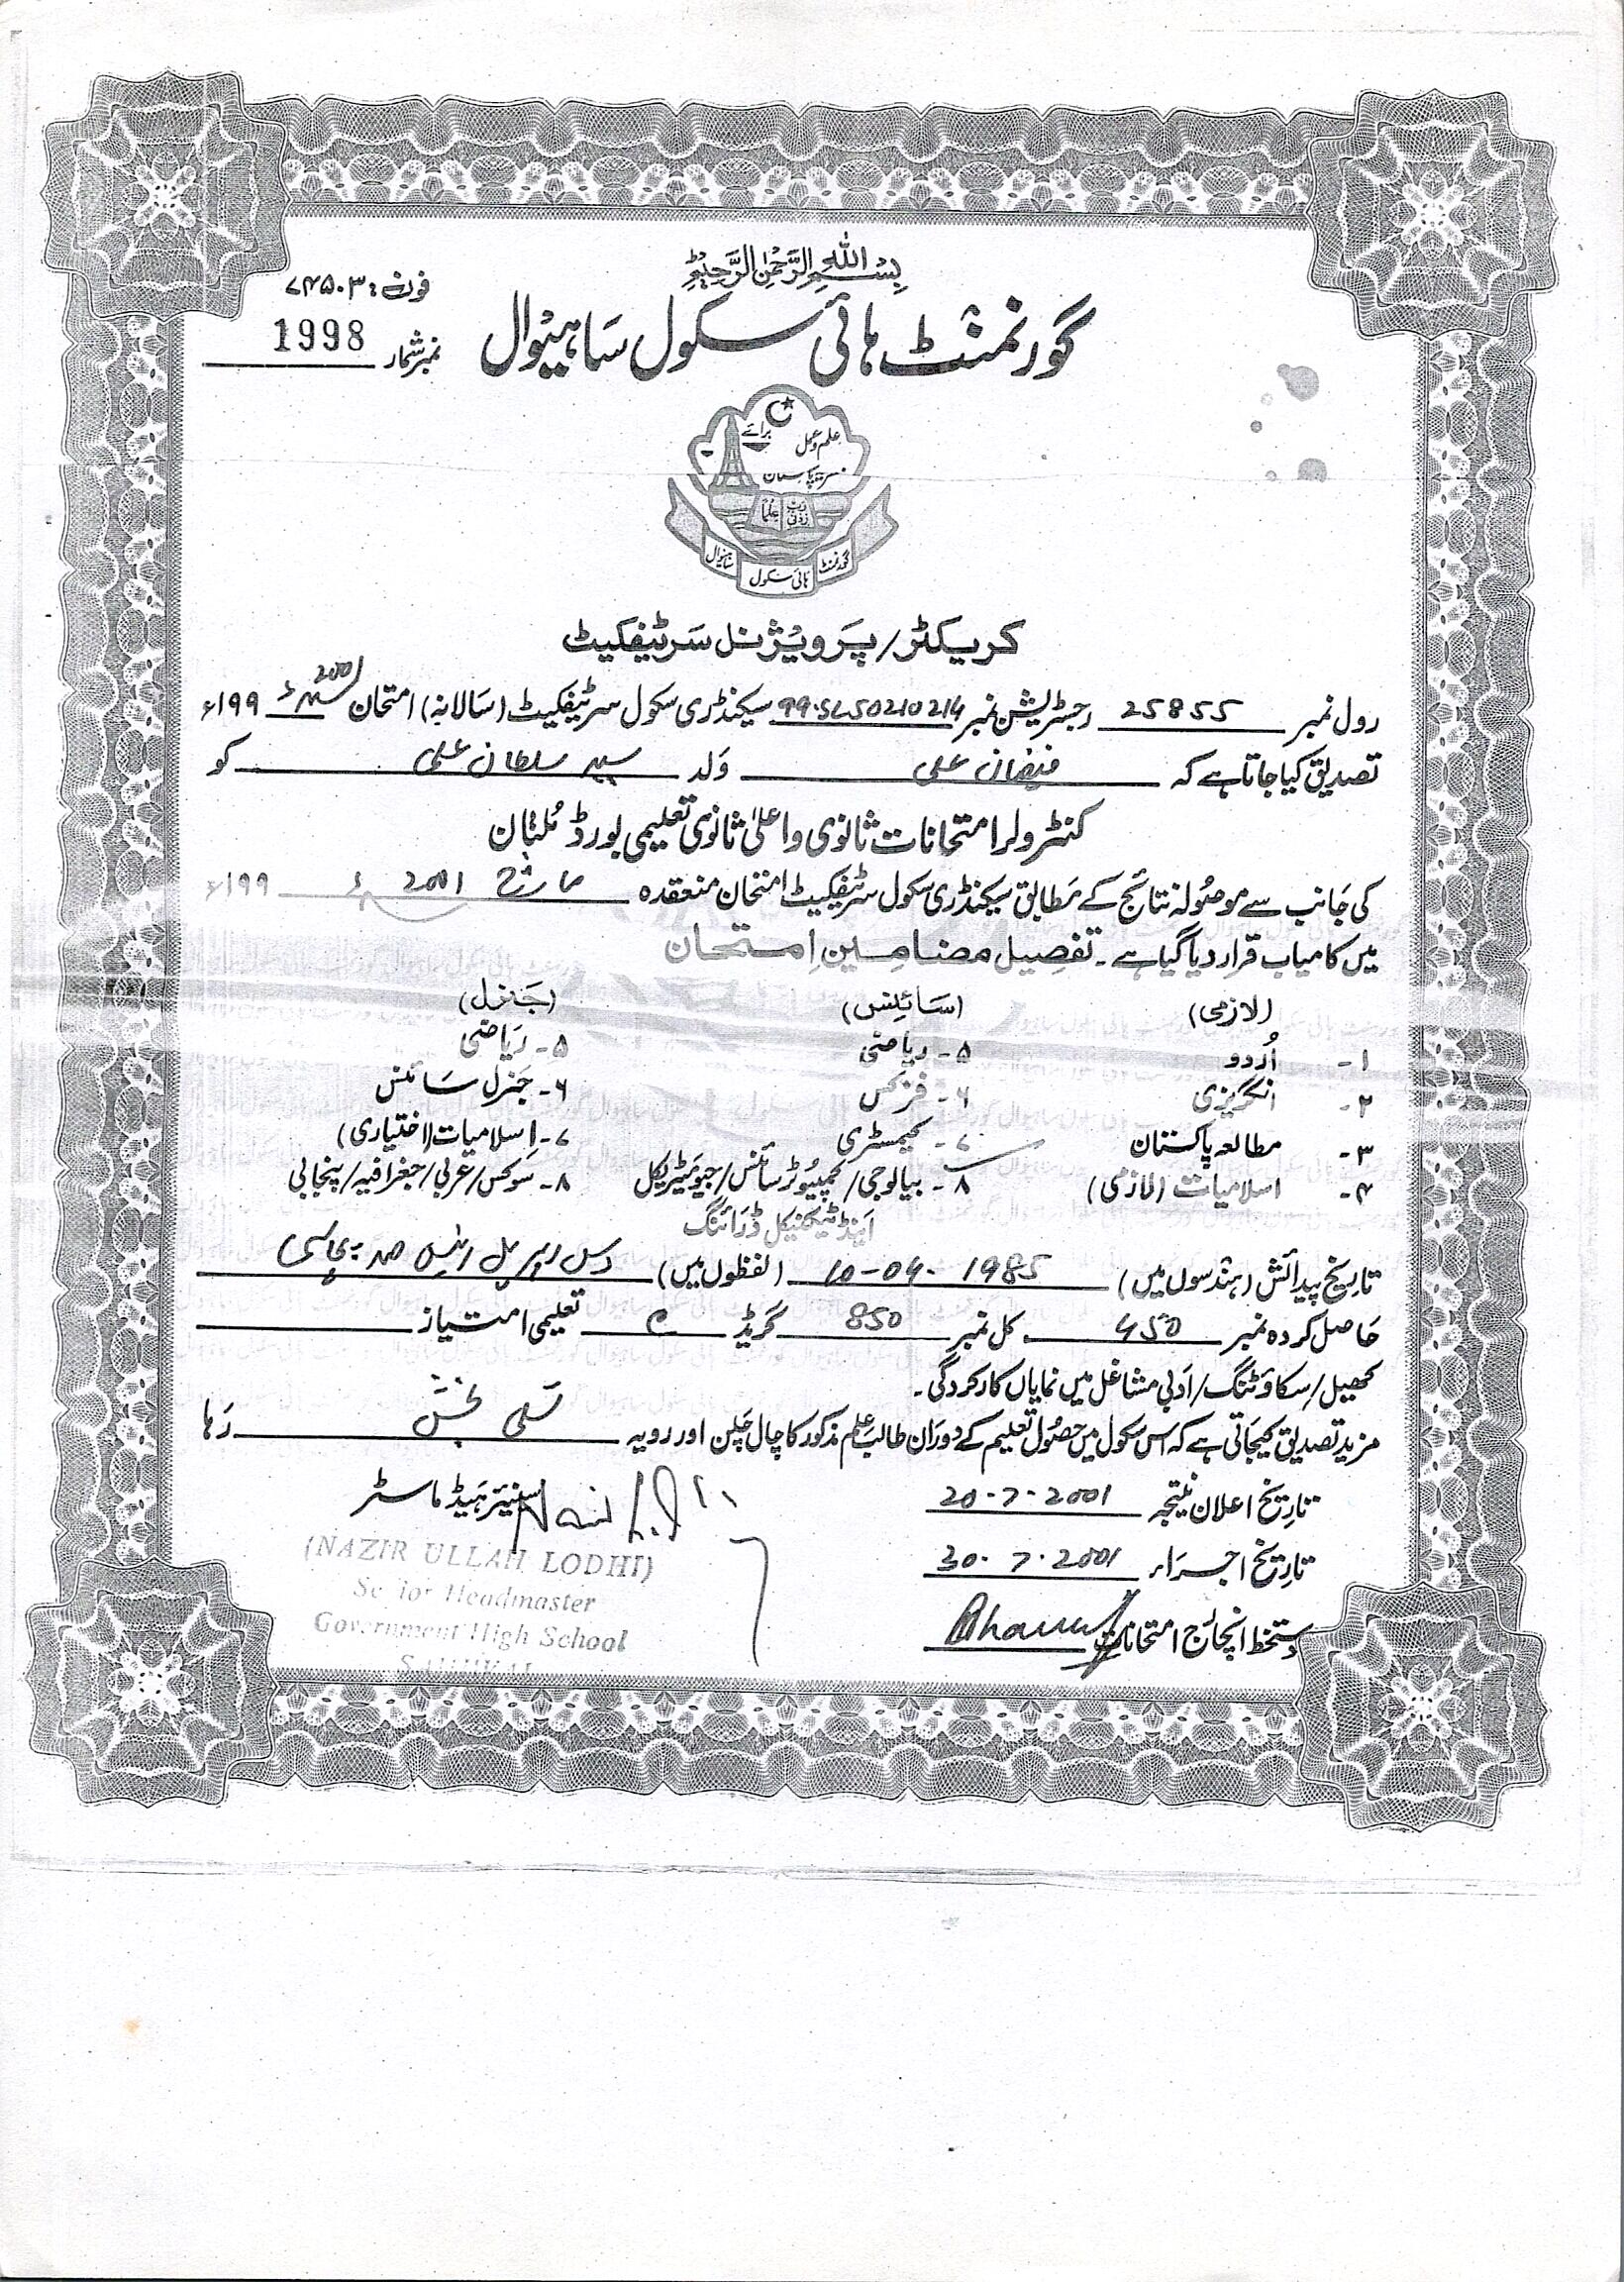 بِسْمِ اللهِ الرَّحْمٰنِ الرَّحِيْمِ
فون: ۷۴۵۰۳
گورنمنٹ ہائی سکول ساہیوال
نمبر شمار 1998
علم و عمل
برائے
پاکستان
رب زدنی علما
گورنمنٹ ہائی سکول ساہیوال
کریکٹر/پرویژنل سرٹیفکیٹ
رول نمبر 25855 رجسٹریشن نمبر 99.SLS0210214 سیکنڈری سکول سرٹیفکیٹ (سالانہ) امتحان 2001ء ۱۹۹ء
تصدیق کیا جاتا ہے کہ فیضان علی ولد سید سلطان علی کو
کنٹرولر امتحانات ثانوی و اعلیٰ ثانوی تعلیمی بورڈ ملتان
کی جانب سے موصولہ نتائج کے مطابق سیکنڈری سکول سرٹیفکیٹ امتحان منعقدہ مارچ 2001ء ۱۹۹ء
میں کامیاب قرار دیا گیا ہے۔ تفصیل مضامین امتحان
(لازمی) (سائنس) (جنرل)
۱- اُردو ۵- ریاضی ۵- ریاضی
۲- انگریزی ۶- فزکس ۶- جنرل سائنس
۳- مطالعہ پاکستان ۷- کیمسٹری ۷- اسلامیات (اختیاری)
۴- اسلامیات (لازمی) ۸- بیالوجی/کمپیوٹر سائنس/جیومیٹریکل ۸- سوکس/عربی/جغرافیہ/پنجابی
اینڈ ٹیکنیکل ڈرائنگ
تاریخ پیدائش (ہندسوں میں) 10-04-1985 (لفظوں میں) دس اپریل انیس صد پچاسی
حاصل کردہ نمبر 450 کل نمبر 850 گریڈ C تعلیمی امتیاز
کھیل/سکاؤٹنگ/ادبی مشاغل میں نمایاں کارکردگی۔
مزید تصدیق کیجاتی ہے کہ اس سکول میں حصول تعلیم کے دوران طالب علم مذکور کا چال چلن اور رویہ تسلی بخش رہا
تاریخ اعلان نتیجہ 20-7-2001
سینئر ہیڈ ماسٹر
تاریخ اجراء 30.7.2001
دستخط انچارج امتحانات
(NAZIR ULLAH LODHI)
Senior Headmaster
Government High School
SAHIWAL